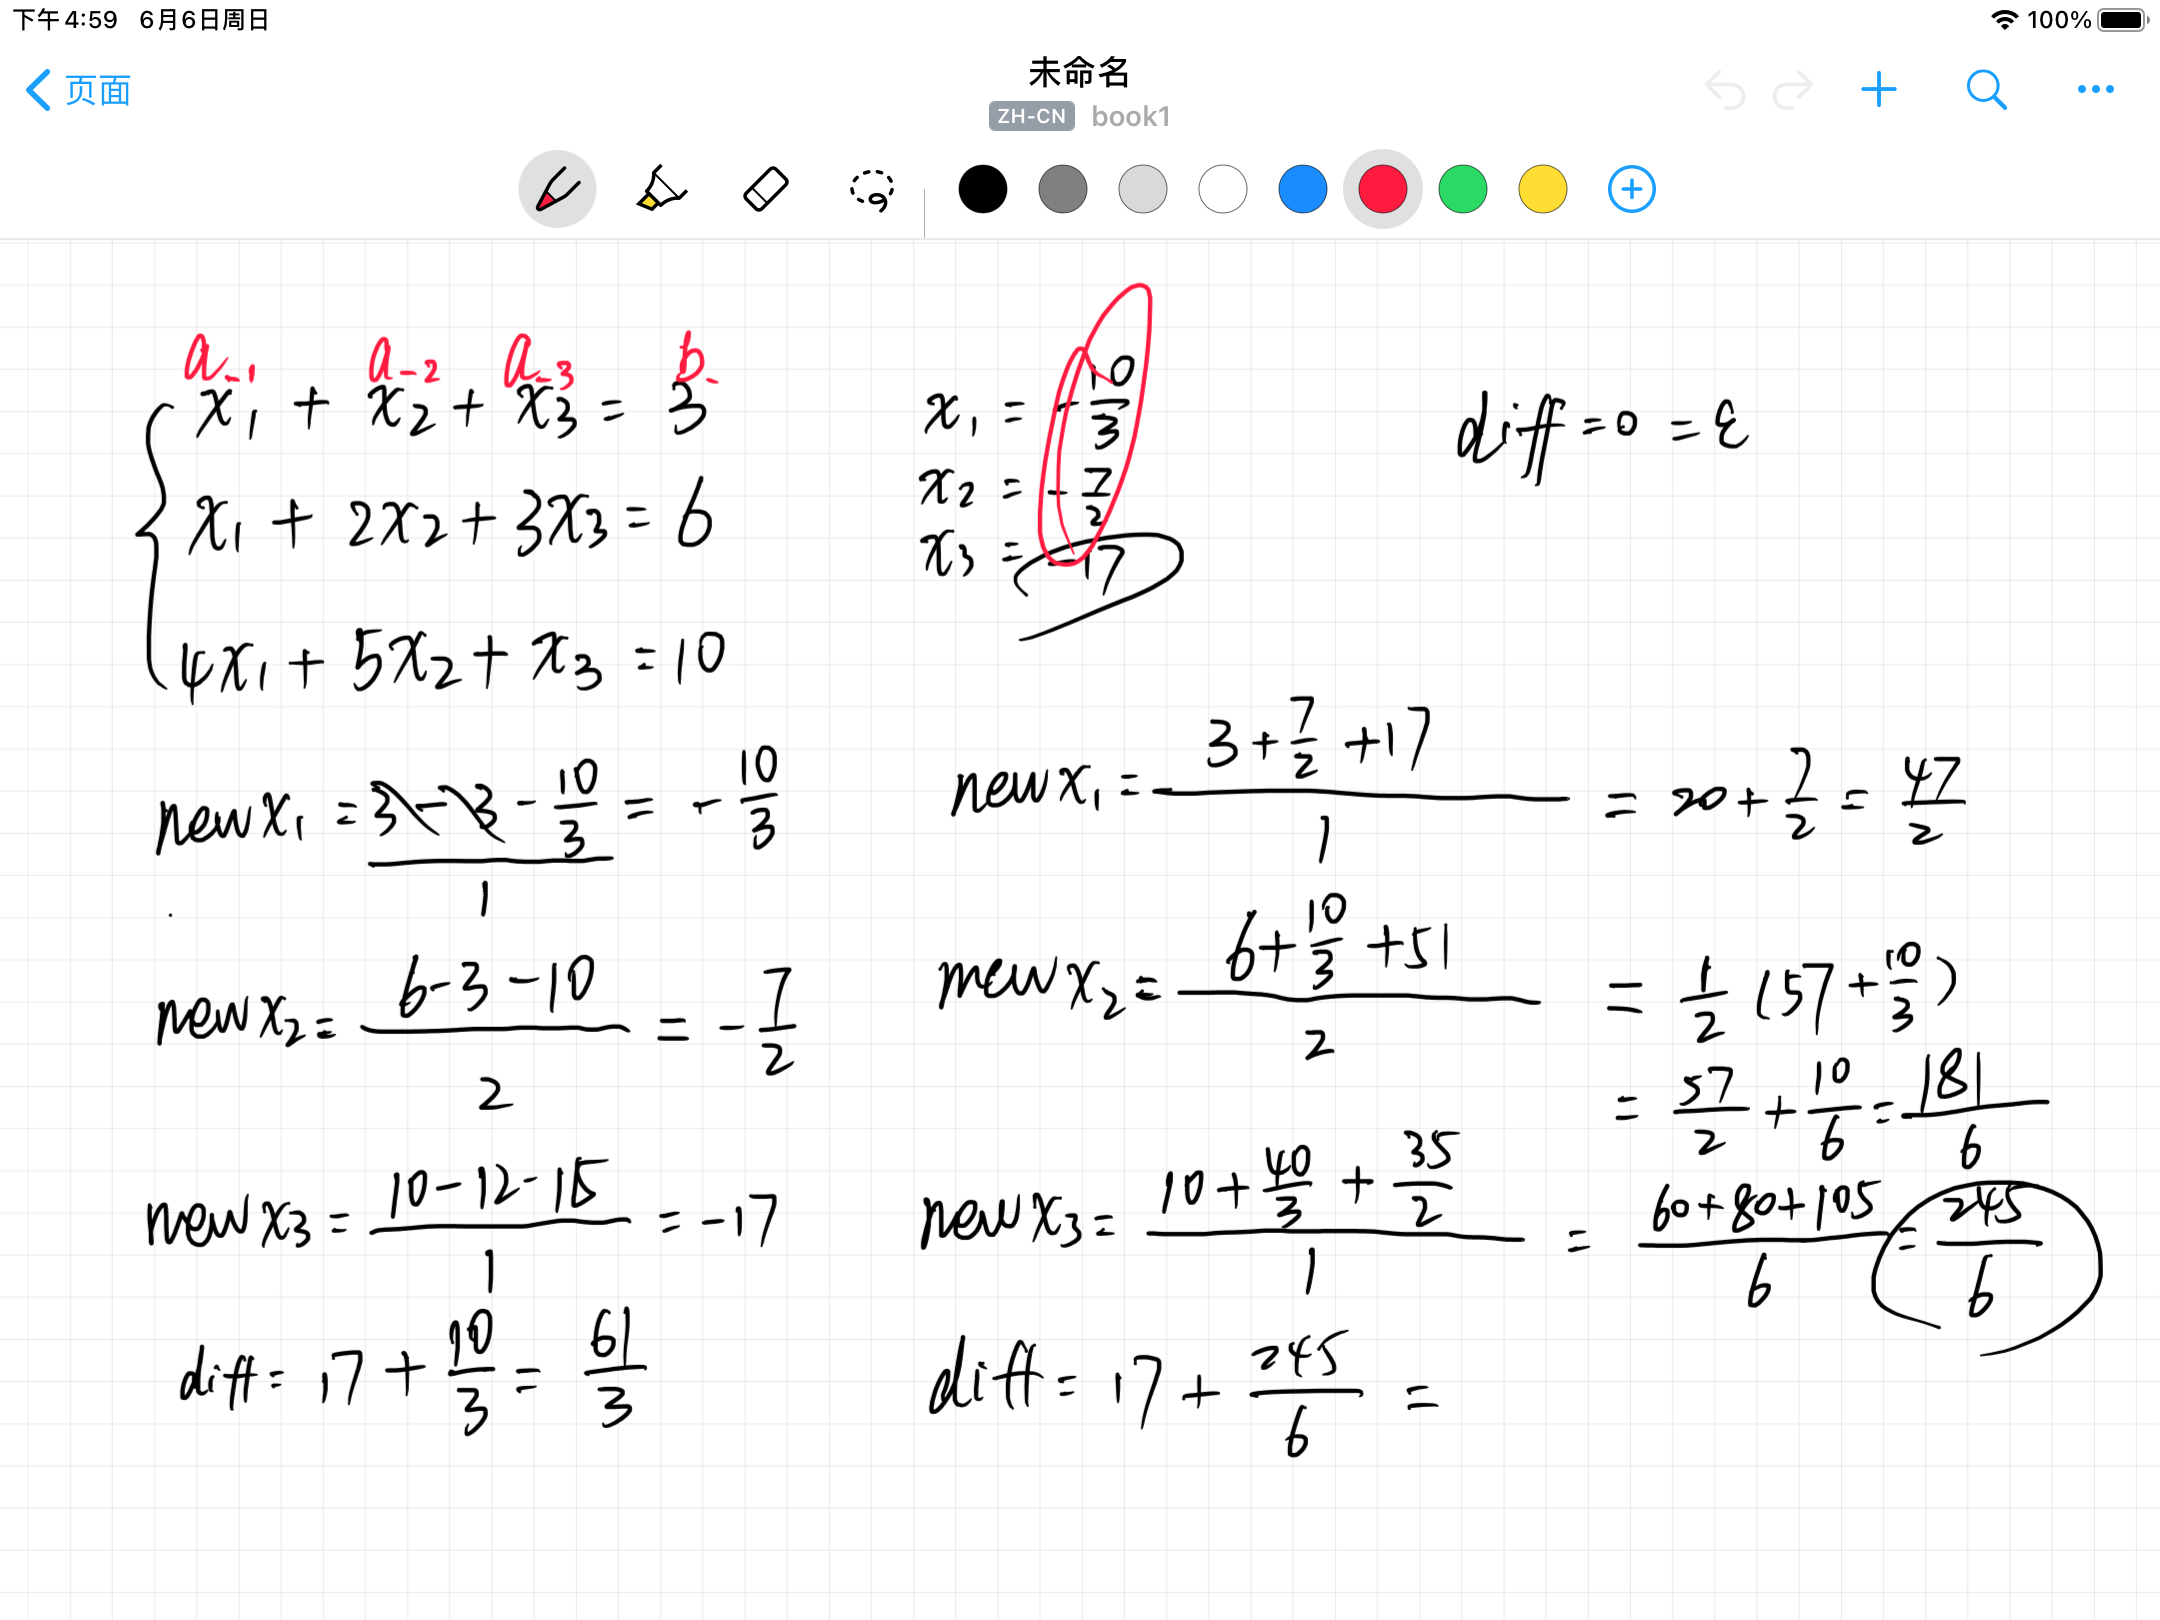 下午4:59 6月6日周日 100%
页面 未命名
ZH-CN book1
a_1 a_2 a_3 b_
x₁ + x₂ + x₃ = 3
x₁ + 2x₂ + 3x₃ = 6
4x₁ + 5x₂ + x₃ = 10
x₁ = -10/3
x₂ = -7/2
x₃ = -17
diff = 0 = ε
new x₁ = (3 - 3 - 10/3)/1 = -10/3
new x₂ = (6 - 3 - 10)/2 = -7/2
new x₃ = (10 - 12 - 15)/1 = -17
diff = 17 + 10/3 = 61/3
new x₁ = (3 + 7/2 + 17)/1 = 20 + 7/2 = 47/2
new x₂ = (6 + 10/3 + 51)/2 = 1/2 (57 + 10/3)
= 57/2 + 10/6 = 181/6
new x₃ = (10 + 40/3 + 35/2)/1 = (60 + 80 + 105)/6 = 245/6
diff = 17 + 245/6 =